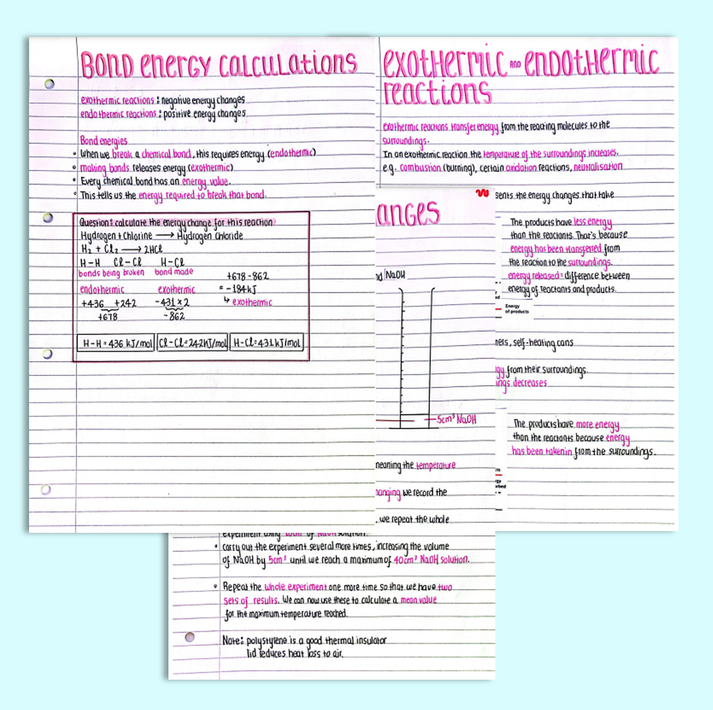 BOND ENERGY CALCULATIONS
exothermic reactions : negative energy changes
endothermic reactions : positive energy changes
Bond energies
• When we break a chemical bond, this requires energy (endothermic)
• making bonds releases energy (exothermic)
• Every chemical bond has an energy value.
• This tells us the energy required to break that bond.
Question: calculate the energy change for this reaction:
Hydrogen + Chlorine → Hydrogen Chloride
H₂ + Cl₂ → 2HCl
H-H Cl-Cl H-Cl
bonds being broken bond made
+678-862
endothermic exothermic = -184kJ
+436 +242 -431×2 ↳ exothermic
+678 -862
H-H = 436 kJ/mol Cl-Cl = 242kJ/mol H-Cl = 431kJ/mol
exothermic AND endothermic
reactions
exothermic reactions transfer energy from the reacting molecules to the
surroundings.
In an exothermic reaction the temperature of the surroundings increases.
e.g. combustion (burning), certain oxidation reactions, neutralisation
sents the energy changes that take
The products have less energy
than the reactants. That's because
energy has been transferred from
the reaction to the surroundings.
energy released : difference between
energy of reactants and products.
Energy
of products
ners, self-heating cans
gy from their surroundings.
ings decreases
The products have more energy
than the reactants because energy
has been taken in from the surroundings.
anges
NaOH
5cm³ NaOH
meaning the temperature
anging we record the
. we repeat the whole
experiment using 10cm³ of NaOH solution.
• carry out the experiment several more times, increasing the volume
of NaOH by 5cm³ until we reach a maximum of 40cm³ NaOH solution.
• Repeat the whole experiment one more time so that we have two
sets of results. We can now use these to calculate a mean value
for the maximum temperature reached.
Note: polystyrene is a good thermal insulator
lid reduces heat loss to air.